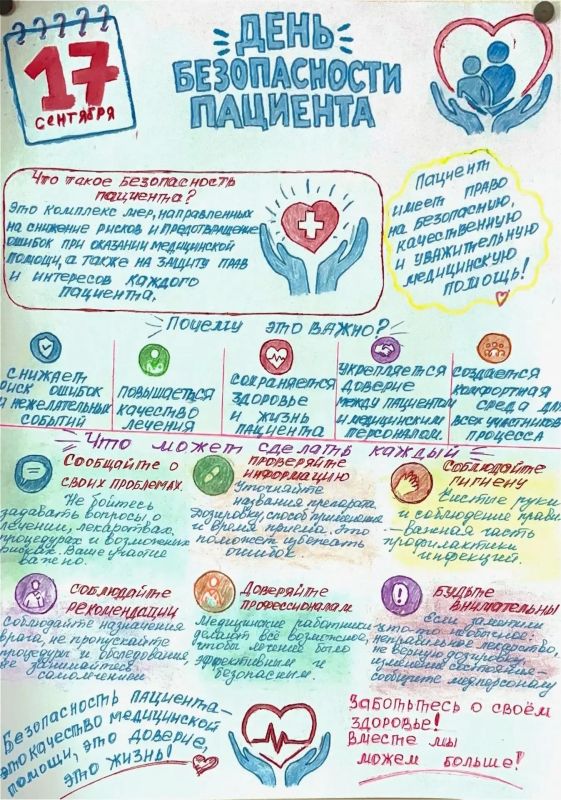 17
СЕНТЯБРЯ
ДЕНЬ
БЕЗОПАСНОСТИ
ПАЦИЕНТА
Что такое безопасность
пациента?
Это комплекс мер, направленных
на снижение рисков и предотвращение
ошибок при оказании медицинской
помощи, а также на защиту прав
и интересов каждого
пациента.
Пациент
имеет право
на безопасную,
качественную
и уважительную
медицинскую
помощь!
Почему это важно?
Снижает
риск ошибок
и нежелательных
событий
Повышается
качество
лечения
Сохраняется
здоровье
и жизнь
пациента
Укрепляется
доверие
между пациентом
и медицинским
персоналом.
Создается
комфортная
среда для
всех участников
процесса
Что может сделать каждый
Сообщайте о
своих проблемах.
Не бойтесь
задавать вопросы, о
лечении, лекарствах,
процедурах и возможных
рисках. Ваше участие
важно.
Проверяйте
информацию
Уточняйте
названия препарата
дозировку, способ применения
и время приема. Это
поможет избежать
ошибок.
Соблюдайте
гигиену
Чистые руки
и соблюдение правил
— важная часть
профилактики
инфекций.
Соблюдайте
рекомендации
Соблюдайте назначения
врача, не пропускайте
процедуры и обследования
не занимайтесь
самолечением
Доверяйте
профессионалам
Медицинские работники
делают всё возможное,
чтобы лечение было
эффективным и
безопасным.
Будьте
внимательны
Если заметили
что-то необычное:
неправильное лекарство,
не верную дозировку,
изменения состояния—
сообщите медперсоналу
Безопасность пациента—
это качество медицинской
помощи, это доверие,
это жизнь!
Заботьтесь о своём
здоровье!
Вместе мы
можем больше!